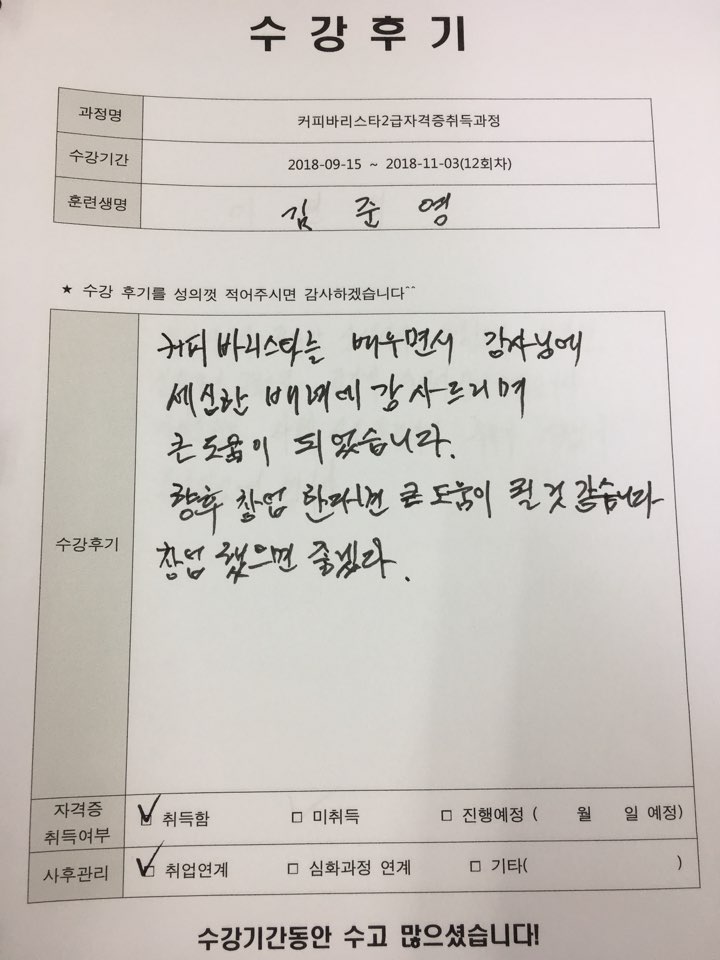 수강후기
과정명 커피바리스타2급자격증취득과정
수강기간 2018-09-15 ~ 2018-11-03(12회차)
훈련생명 김 준 영
★ 수강 후기를 성의껏 적어주시면 감사하겠습니다^^
커피 바리스타를 배우면서 강사님에
세심한 배려에 감사드리며
큰 도움이 되었습니다.
향후 창업 한다면 큰 도움이 될 것 같습니다
수강후기
창업 했으면 좋겠다.
자격증 취득여부 ☑ 취득함 □ 미취득 □ 진행예정 ( 월 일 예정)
사후관리 ☑ 취업연계 □ 심화과정 연계 □ 기타( )
수강기간동안 수고 많으셨습니다!